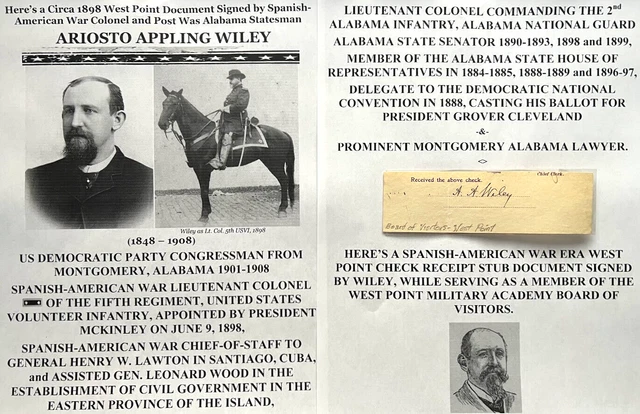 Here's a Circa 1898 West Point Document Signed by Spanish-
American War Colonel and Post War Alabama Statesman
ARIOSTO APPLING WILEY
Wiley as Lt. Col. 5th USVI, 1898
(1848 – 1908)
US DEMOCRATIC PARTY CONGRESSMAN FROM
MONTGOMERY, ALABAMA 1901-1908
SPANISH-AMERICAN WAR LIEUTENANT COLONEL
OF THE FIFTH REGIMENT, UNITED STATES
VOLUNTEER INFANTRY, APPOINTED BY PRESIDENT
MCKINLEY ON JUNE 9, 1898,
SPANISH-AMERICAN WAR CHIEF-OF-STAFF TO
GENERAL HENRY W. LAWTON IN SANTIAGO, CUBA,
and ASSISTED GEN. LEONARD WOOD IN THE
ESTABLISHMENT OF CIVIL GOVERNMENT IN THE
EASTERN PROVINCE OF THE ISLAND,
LIEUTENANT COLONEL COMMANDING THE 2nd
ALABAMA INFANTRY, ALABAMA NATIONAL GUARD
ALABAMA STATE SENATOR 1890-1893, 1898 and 1899,
MEMBER OF THE ALABAMA STATE HOUSE OF
REPRESENTATIVES IN 1884-1885, 1888-1889 and 1896-97,
DELEGATE TO THE DEMOCRATIC NATIONAL
CONVENTION IN 1888, CASTING HIS BALLOT FOR
PRESIDENT GROVER CLEVELAND
-&-
PROMINENT MONTGOMERY ALABAMA LAWYER.
Chief Clerk.
Received the above check.
A. A. Wiley
Board of Visitors - West Point
HERE'S A SPANISH-AMERICAN WAR ERA WEST
POINT CHECK RECEIPT STUB DOCUMENT SIGNED
BY WILEY, WHILE SERVING AS A MEMBER OF THE
WEST POINT MILITARY ACADEMY BOARD OF
VISITORS.